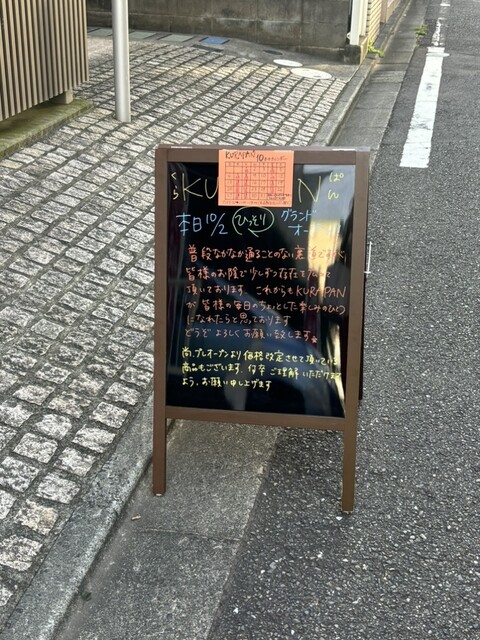 KURAPAN 10月カレンダー
くら KU N ぱん
本日10/2 ひっそり グランド
オープン
普段なかなか通ることのない裏道ですが、
皆様のお陰で少しずつ存在を
頂いております。これからもKURAPAN
が皆様の毎日のちょっとした楽しみのひとつ
になれたらと思っております
どうぞよろしくお願い致します
尚、プレオープンより価格改定させて頂いている
商品もございます。何卒ご理解いただけます
よう、お願い申し上げます